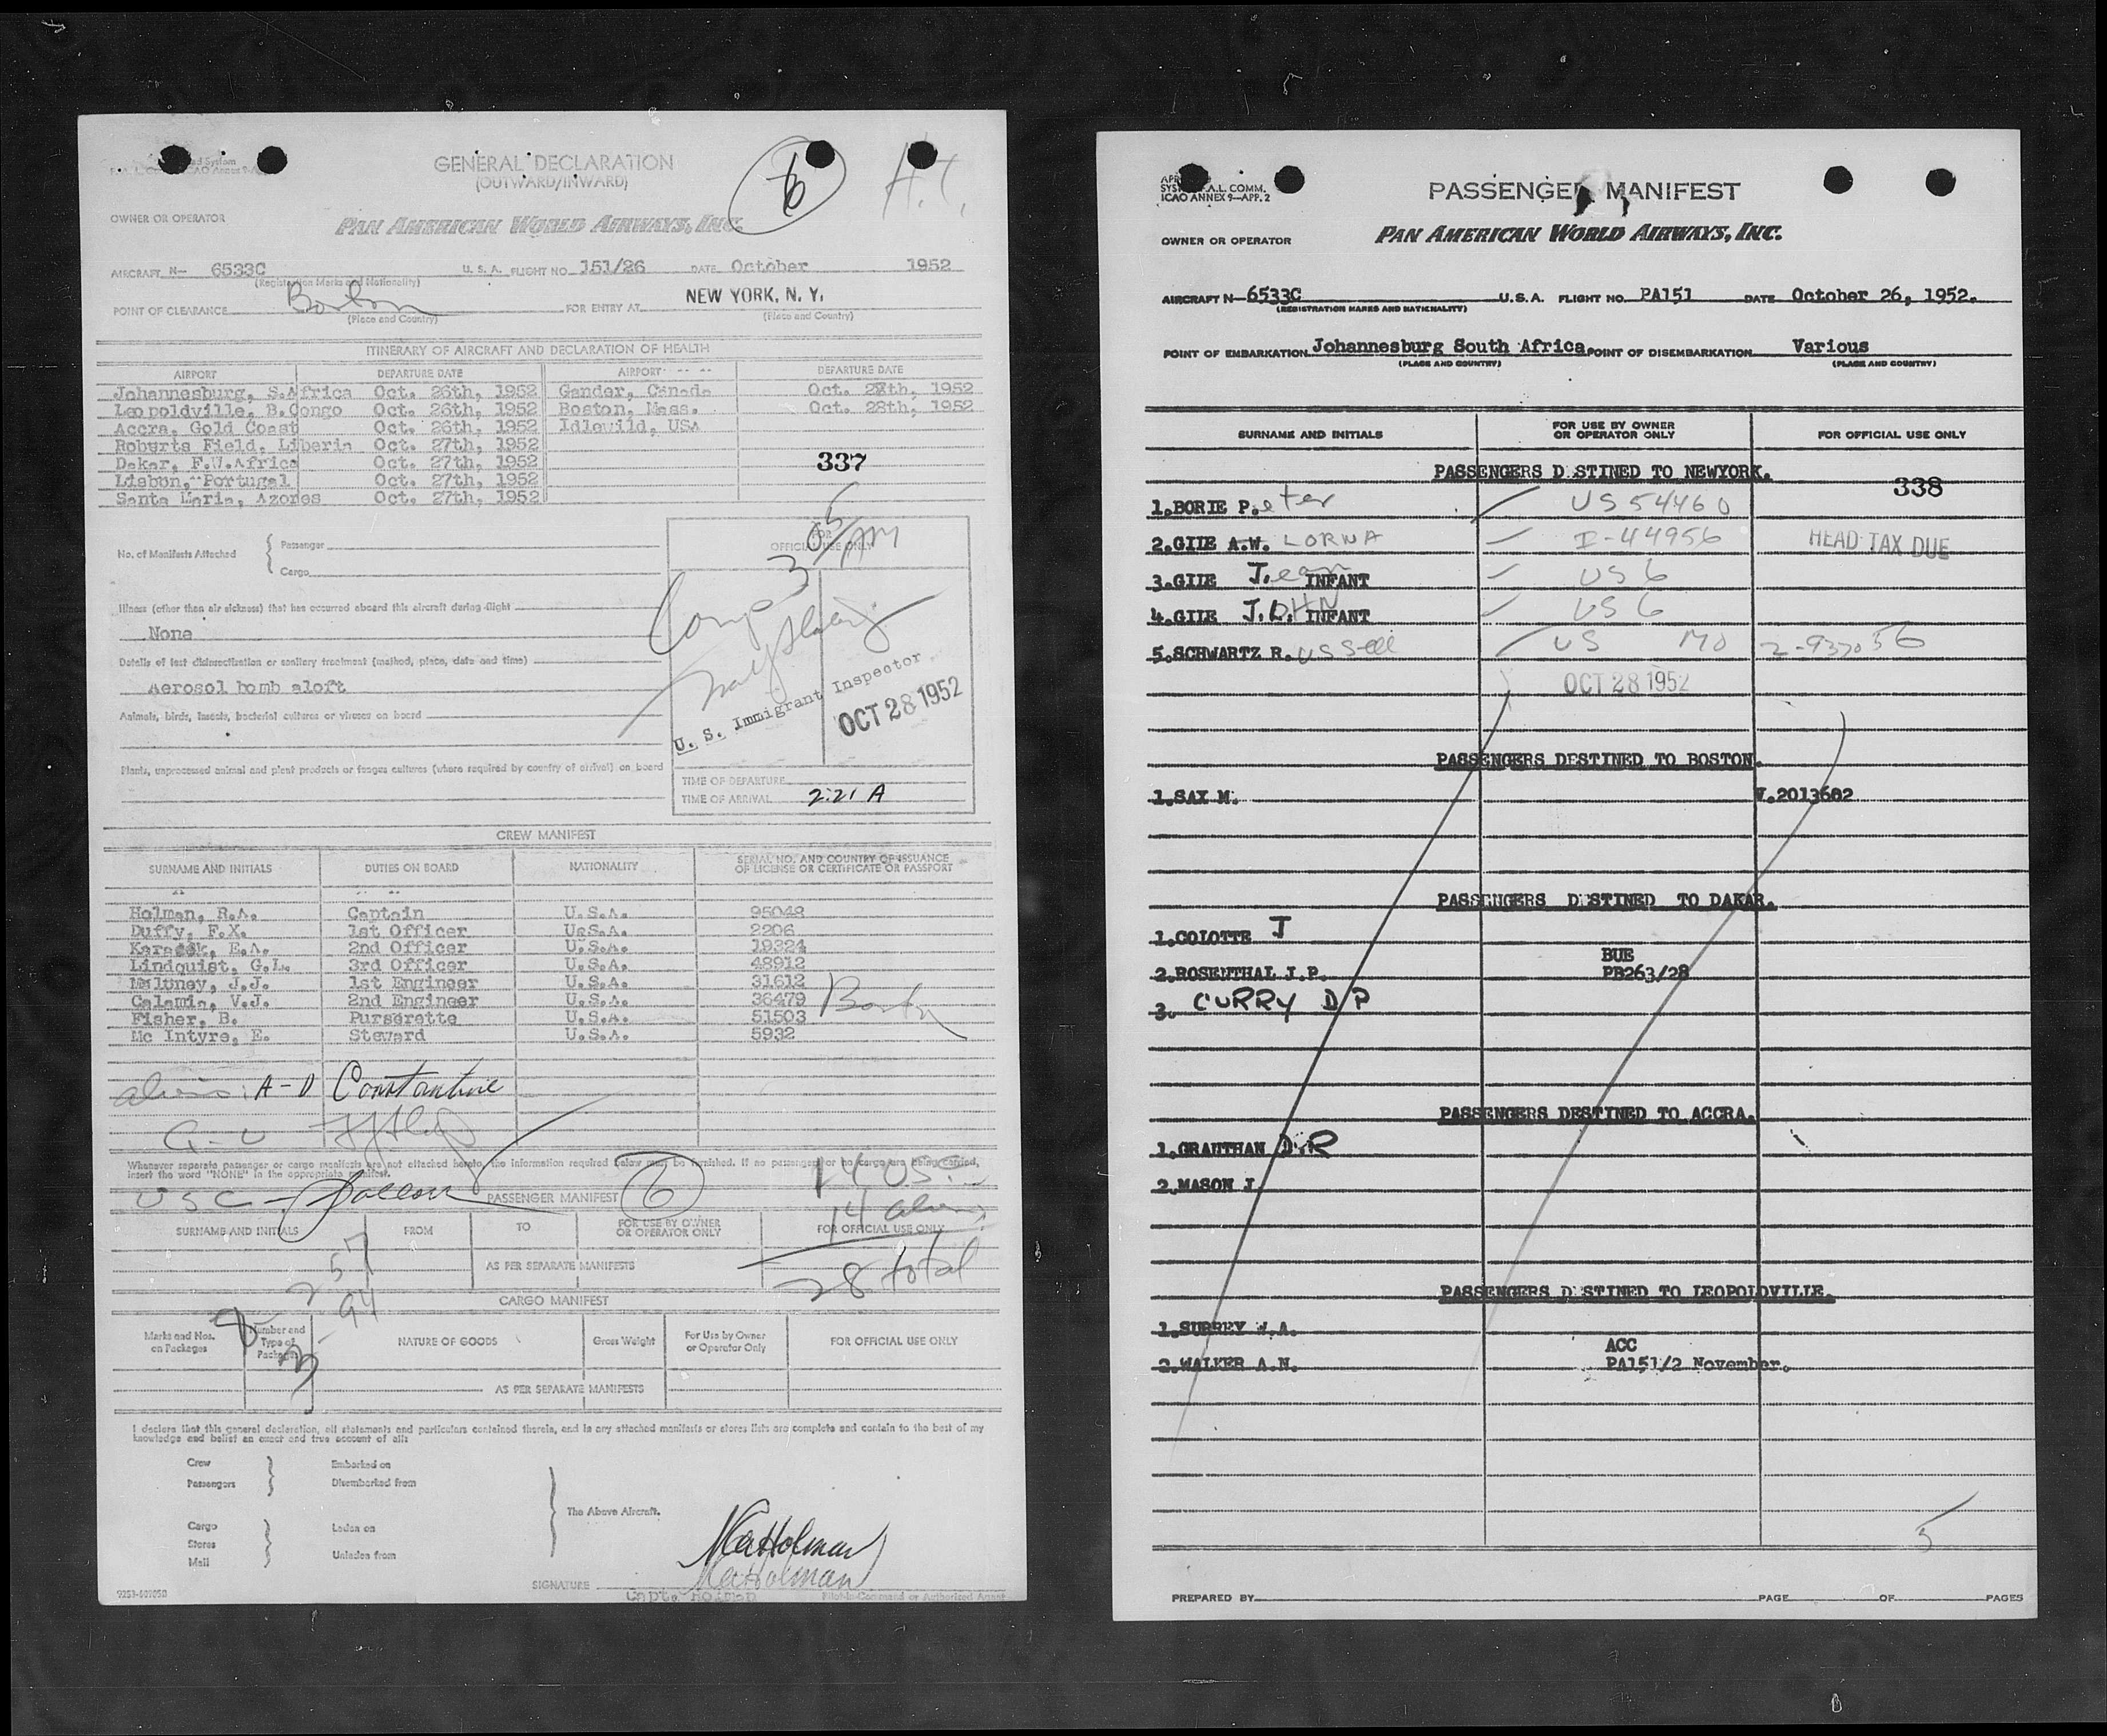 GENERAL DECLARATION
(OUTWARD/INWARD)
6
H.T.
OWNER OR OPERATOR
PAN AMERICAN WORLD AIRWAYS, INC.
AIRCRAFT N— 6533C U. S. A. FLIGHT NO. 151/26 DATE October 1952
(Registration Marks and Nationality)
POINT OF CLEARANCE Boston FOR ENTRY AT NEW YORK, N. Y.
(Place and Country) (Place and Country)
ITINERARY OF AIRCRAFT AND DECLARATION OF HEALTH
AIRPORT DEPARTURE DATE AIRPORT DEPARTURE DATE
Johannesburg, S.Africa Oct. 26th, 1952 Gander, Canada Oct. 28th, 1952
Leopoldville, B.Congo Oct. 26th, 1952 Boston, Mass. Oct. 28th, 1952
Accra, Gold Coast Oct. 26th, 1952 Idlewild, USA
Roberts Field, Liberia Oct. 27th, 1952
Dakar, F.W.Africa Oct. 27th, 1952 337
Lisbon, Portugal Oct. 27th, 1952
Santa Maria, Azores Oct. 27th, 1952
No. of Manifests Attached Passenger
Cargo
FOR
OFFICIAL USE ONLY
Illness (other than air sickness) that has occurred aboard this aircraft during flight
None
Details of last disinsectization or sanitary treatment (method, place, date and time)
Aerosol bomb aloft
Animals, birds, insects, bacterial cultures or viruses on board
U. S. Immigrant Inspector
OCT 28 1952
Plants, unprocessed animal and plant products or fungus cultures (where required by country of arrival) on board
TIME OF DEPARTURE
TIME OF ARRIVAL 2:21 A
CREW MANIFEST
SURNAME AND INITIALS DUTIES ON BOARD NATIONALITY SERIAL NO. AND COUNTRY OF ISSUANCE OF LICENSE OR CERTIFICATE OR PASSPORT
Holman, R.A. Captain U.S.A. 95048
Duffy, F.X. 1st Officer U.S.A. 2206
E.A. 2nd Officer U.S.A. 19324
Lindquist, G.L. 3rd Officer U.S.A. 48912
Maloney, J.J. 1st Engineer U.S.A. 31612
Calamia, V.J. 2nd Engineer U.S.A. 36479 Boston
Fisher, B. Purserette U.S.A. 51503
Mc Intyre, E. Steward U.S.A. 5932
aliens: A-D Constantine
G-U
Whenever separate passenger or cargo manifests are not attached hereto, the information required below must be furnished. If no passengers or no cargo are being carried,
insert the word "NONE" in the appropriate manifest.
14 USC
USC —
PASSENGER MANIFEST 6
14 aliens
SURNAME AND INITIALS FROM TO FOR USE BY OWNER OR OPERATOR ONLY FOR OFFICIAL USE ONLY
257
AS PER SEPARATE MANIFESTS
28 total
94
CARGO MANIFEST
Marks and Nos. on Packages Number and Type of Packages NATURE OF GOODS Gross Weight For Use by Owner or Operator Only FOR OFFICIAL USE ONLY
AS PER SEPARATE MANIFESTS
I declare that this general declaration, all statements and particulars contained therein, and in any attached manifests or stores lists are complete and contain to the best of my
knowledge and belief an exact and true account of all:
Crew Embarked on
Passengers Disembarked from
The Above Aircraft.
Cargo Laden on
Stores
Mail Unladen from
RA Holman
RA Holman
SIGNATURE
Capt. Holman Pilot-in-Command or Authorized Agent
APP
SYS A.L. COMM.
ICAO ANNEX 9—APP. 2
PASSENGER MANIFEST
OWNER OR OPERATOR
PAN AMERICAN WORLD AIRWAYS, INC.
AIRCRAFT N—6533C U.S.A. FLIGHT NO. PA151 DATE October 26, 1952.
(REGISTRATION MARKS AND NATIONALITY)
POINT OF EMBARKATION Johannesburg South Africa POINT OF DISEMBARKATION Various
(PLACE AND COUNTRY) (PLACE AND COUNTRY)
SURNAME AND INITIALS FOR USE BY OWNER OR OPERATOR ONLY FOR OFFICIAL USE ONLY
PASSENGERS D STINED TO NEWYORK.
338
1.BORIE P.eter US 54460
2.GIIE A.W. LORNA I-44956 HEAD TAX DUE
3.GIIE J.ean INFANT US 6
4.GIIE J.OHN INFANT US 6
5.SCHWARTZ R.ussell US MO 2-937056
OCT 28 1952
PASSENGERS DESTINED TO BOSTON.
1.SAX M. V.2013682
PASSENGERS D STINED TO DAKAR.
1.COLOTTE J
BUE
2.ROSENTHAL J.P. PB263/28
3. CURRY D P
PASSENGERS DESTINED TO ACCRA.
1.GRAUTHAN D.R
2.MASON J.
PASSENGERS D STINED TO LEOPOLDVILLE.
1.SURREY W.A.
ACC
2.WALKER A.N. PA151/2 November.
5
PREPARED BY PAGE OF PAGES